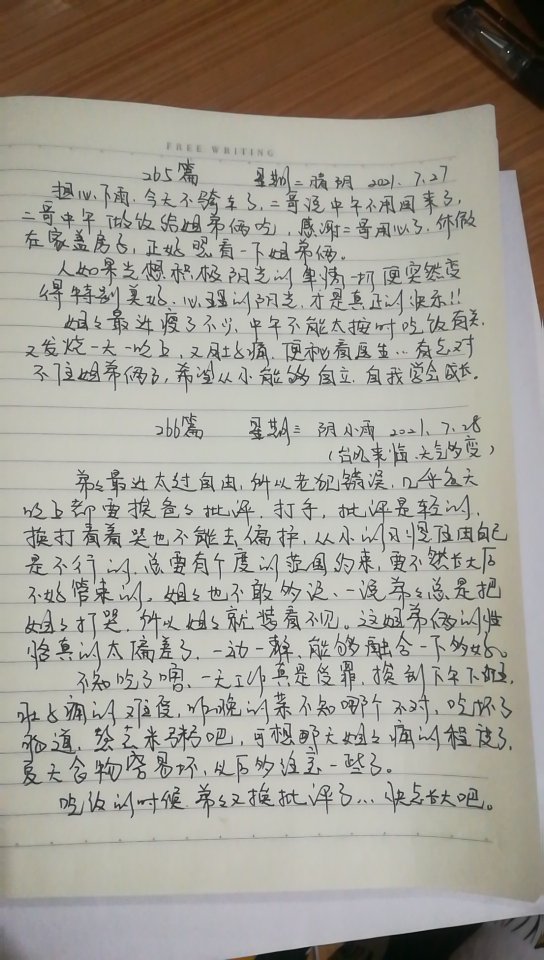 FREE WRITING
265篇 星期二 晴阴 2021.7.27
担心下雨,今天不骑车了,二哥说中午不用回来了,
二哥中午做饭给姐弟俩吃,感谢二哥用心了,你做
在家盖房子,正好照看一下姐弟俩。
人如果光想积极阳光的事情一切便突然变
得特别美好,心理的阳光,才是真正的快乐!!
姐姐最近瘦了不少,中午不能太按时吃饭有关,
又发烧一天一晚上,又肚子痛,便秘看医生…有点对
不住姐弟俩了,希望从小能够自立,自我学会成长。
266篇 星期三 阴小雨 2021.7.28
(台风来临,天气多变)
弟弟最近太过自由,所以老犯错误,几乎每天
晚上都要挨爸爸批评,打手,批评是轻的,
挨打看着哭也不能去偏护,从小的习惯任由自己
是不行的,总要有个度的范围约束,要不然长大后
不好管束的,姐姐也不敢多说,一说弟弟总是把
姐姐打哭,所以姐姐就装看不见。这姐弟俩的性
格真的太偏差了,一动一静,能够融合一下多好。
不知吃了啥,一天工作真是受罪,挨到下午下班,
肚子痛的难受,昨晚的菜不知哪个不对,吃坏了
肠道,熬点米粥吧,可想那天姐姐痛的程度了,
夏天食物容易坏,以后多注意一些了。
吃饭的时候弟弟又挨批评了…快点长大吧。